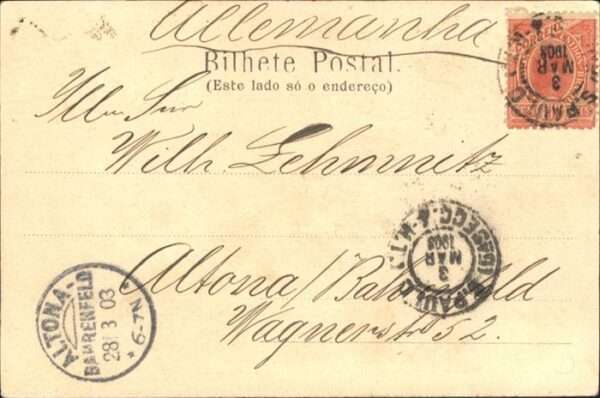 Allemanha
Bilhete Postal.
(Este lado só o endereço)
Wilh. Lehmnitz
Altona/Bahrenfeld
Wagnerstr 52.
S. PAULO
3
MAR
1903
S. PAULO
3
MAR
1903
ALTONA-
BAHRENFELD
28/3 03
*6-7N